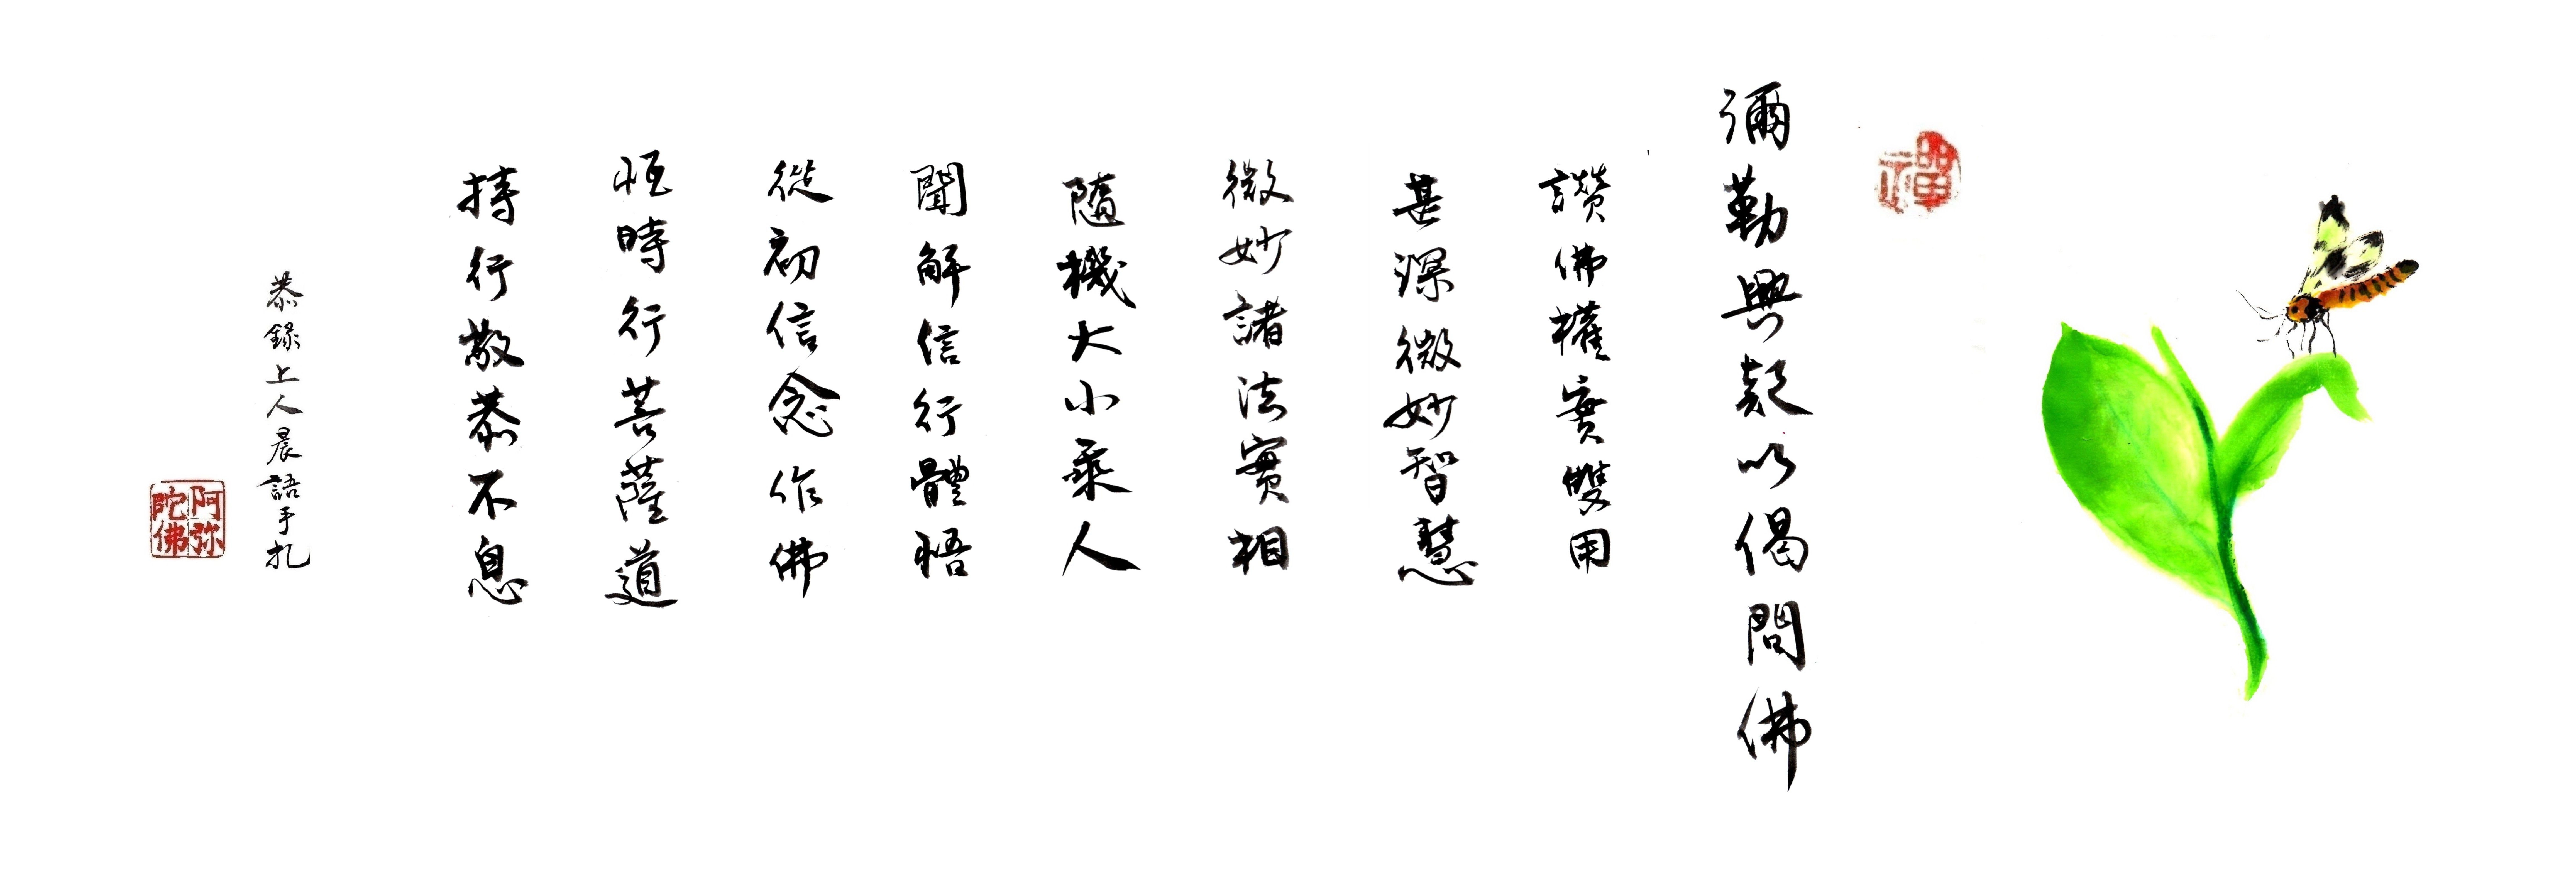 禪
彌勒興起以偈問佛
讚佛權實雙用
甚深微妙智慧
微妙諸法實相
隨機大小乘人
聞解信行體悟
從初信念作佛
恆時行菩薩道
持行敬恭不息
恭錄上人晨語手扎
阿弥陀佛